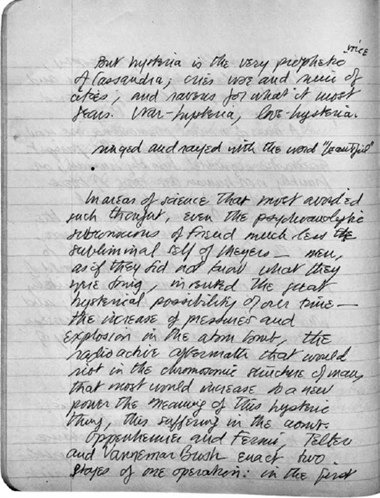 voice
But hysteria is the very prophetic
of Cassandra; cries woe and ruin of
cities, and ravens for what it most
fears. War-hysteria, love-hysteria.
and with the word "beautiful"
In areas of science that most avoided
such thought, even the psychoanalytic
subconscious of Freud much less the
subliminal self of Meyers — men,
as if they did not know what they
were doing, the great
hysterical possibility of our time —
the increase of pressures and
explosion in the atom bomb, the
radioactive aftermath that would
riot in the chromosomic structure of man,
that most would increase to a new
power the meaning of this hysteric
thing, this suffering in the
Oppenheimer and Fermi, Teller
and Vannemar Bush enact two
stages of one operation: in the first